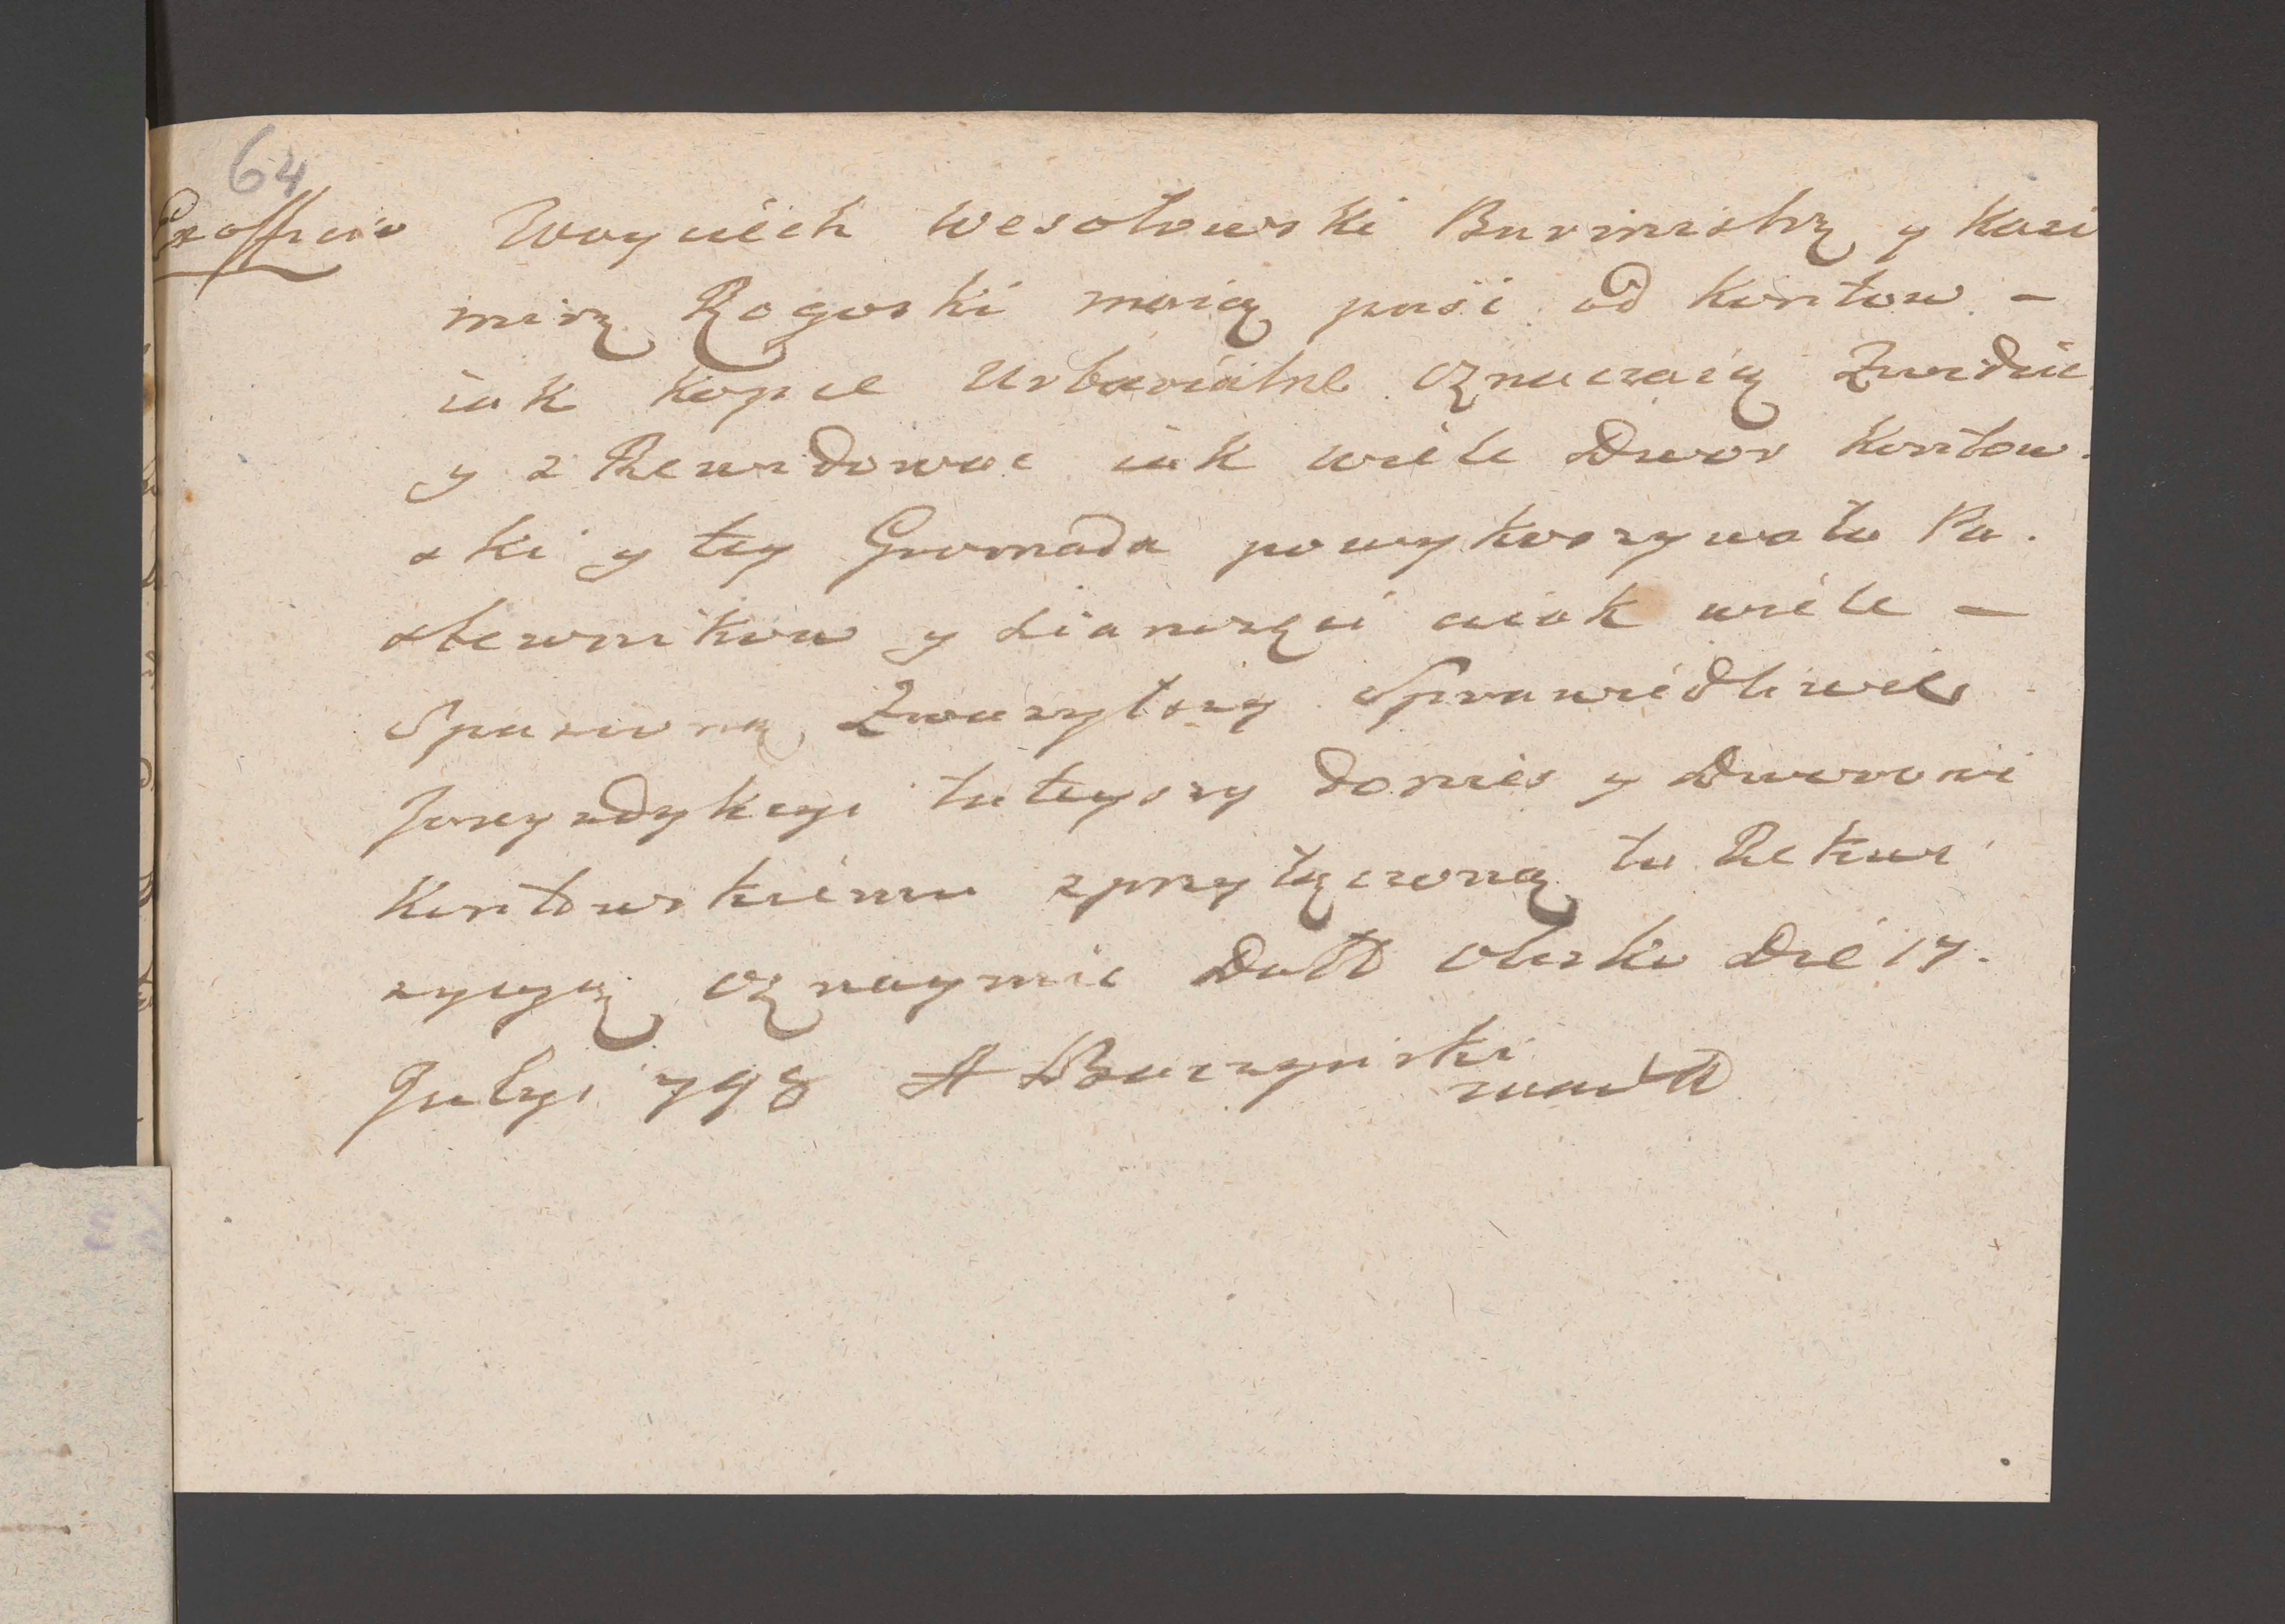 64
Ex offizio Woyciéch Wesołowski Burmistrz y Kazi
mirz Rogoski maią pujśi od Kontow –
iak kopce Urbarialne oznaczaią Zwidzic
y z Rewidowac iak wiéle Dwor Kontow.
ski y tey Gromada powykoszywała Pa.
stewnikow y Sianożęci aiak wiéle –
Spasiona Zwazytszy Sprawiedliwie
Juryzdykcyi tuteyszy donies y Dworowi
Kontowskiému zprzyłączoną tu Rekwi
zycyą oznaymic Datt Olesko Dié 17.
Julyi 798 A Buczynski
mandtt